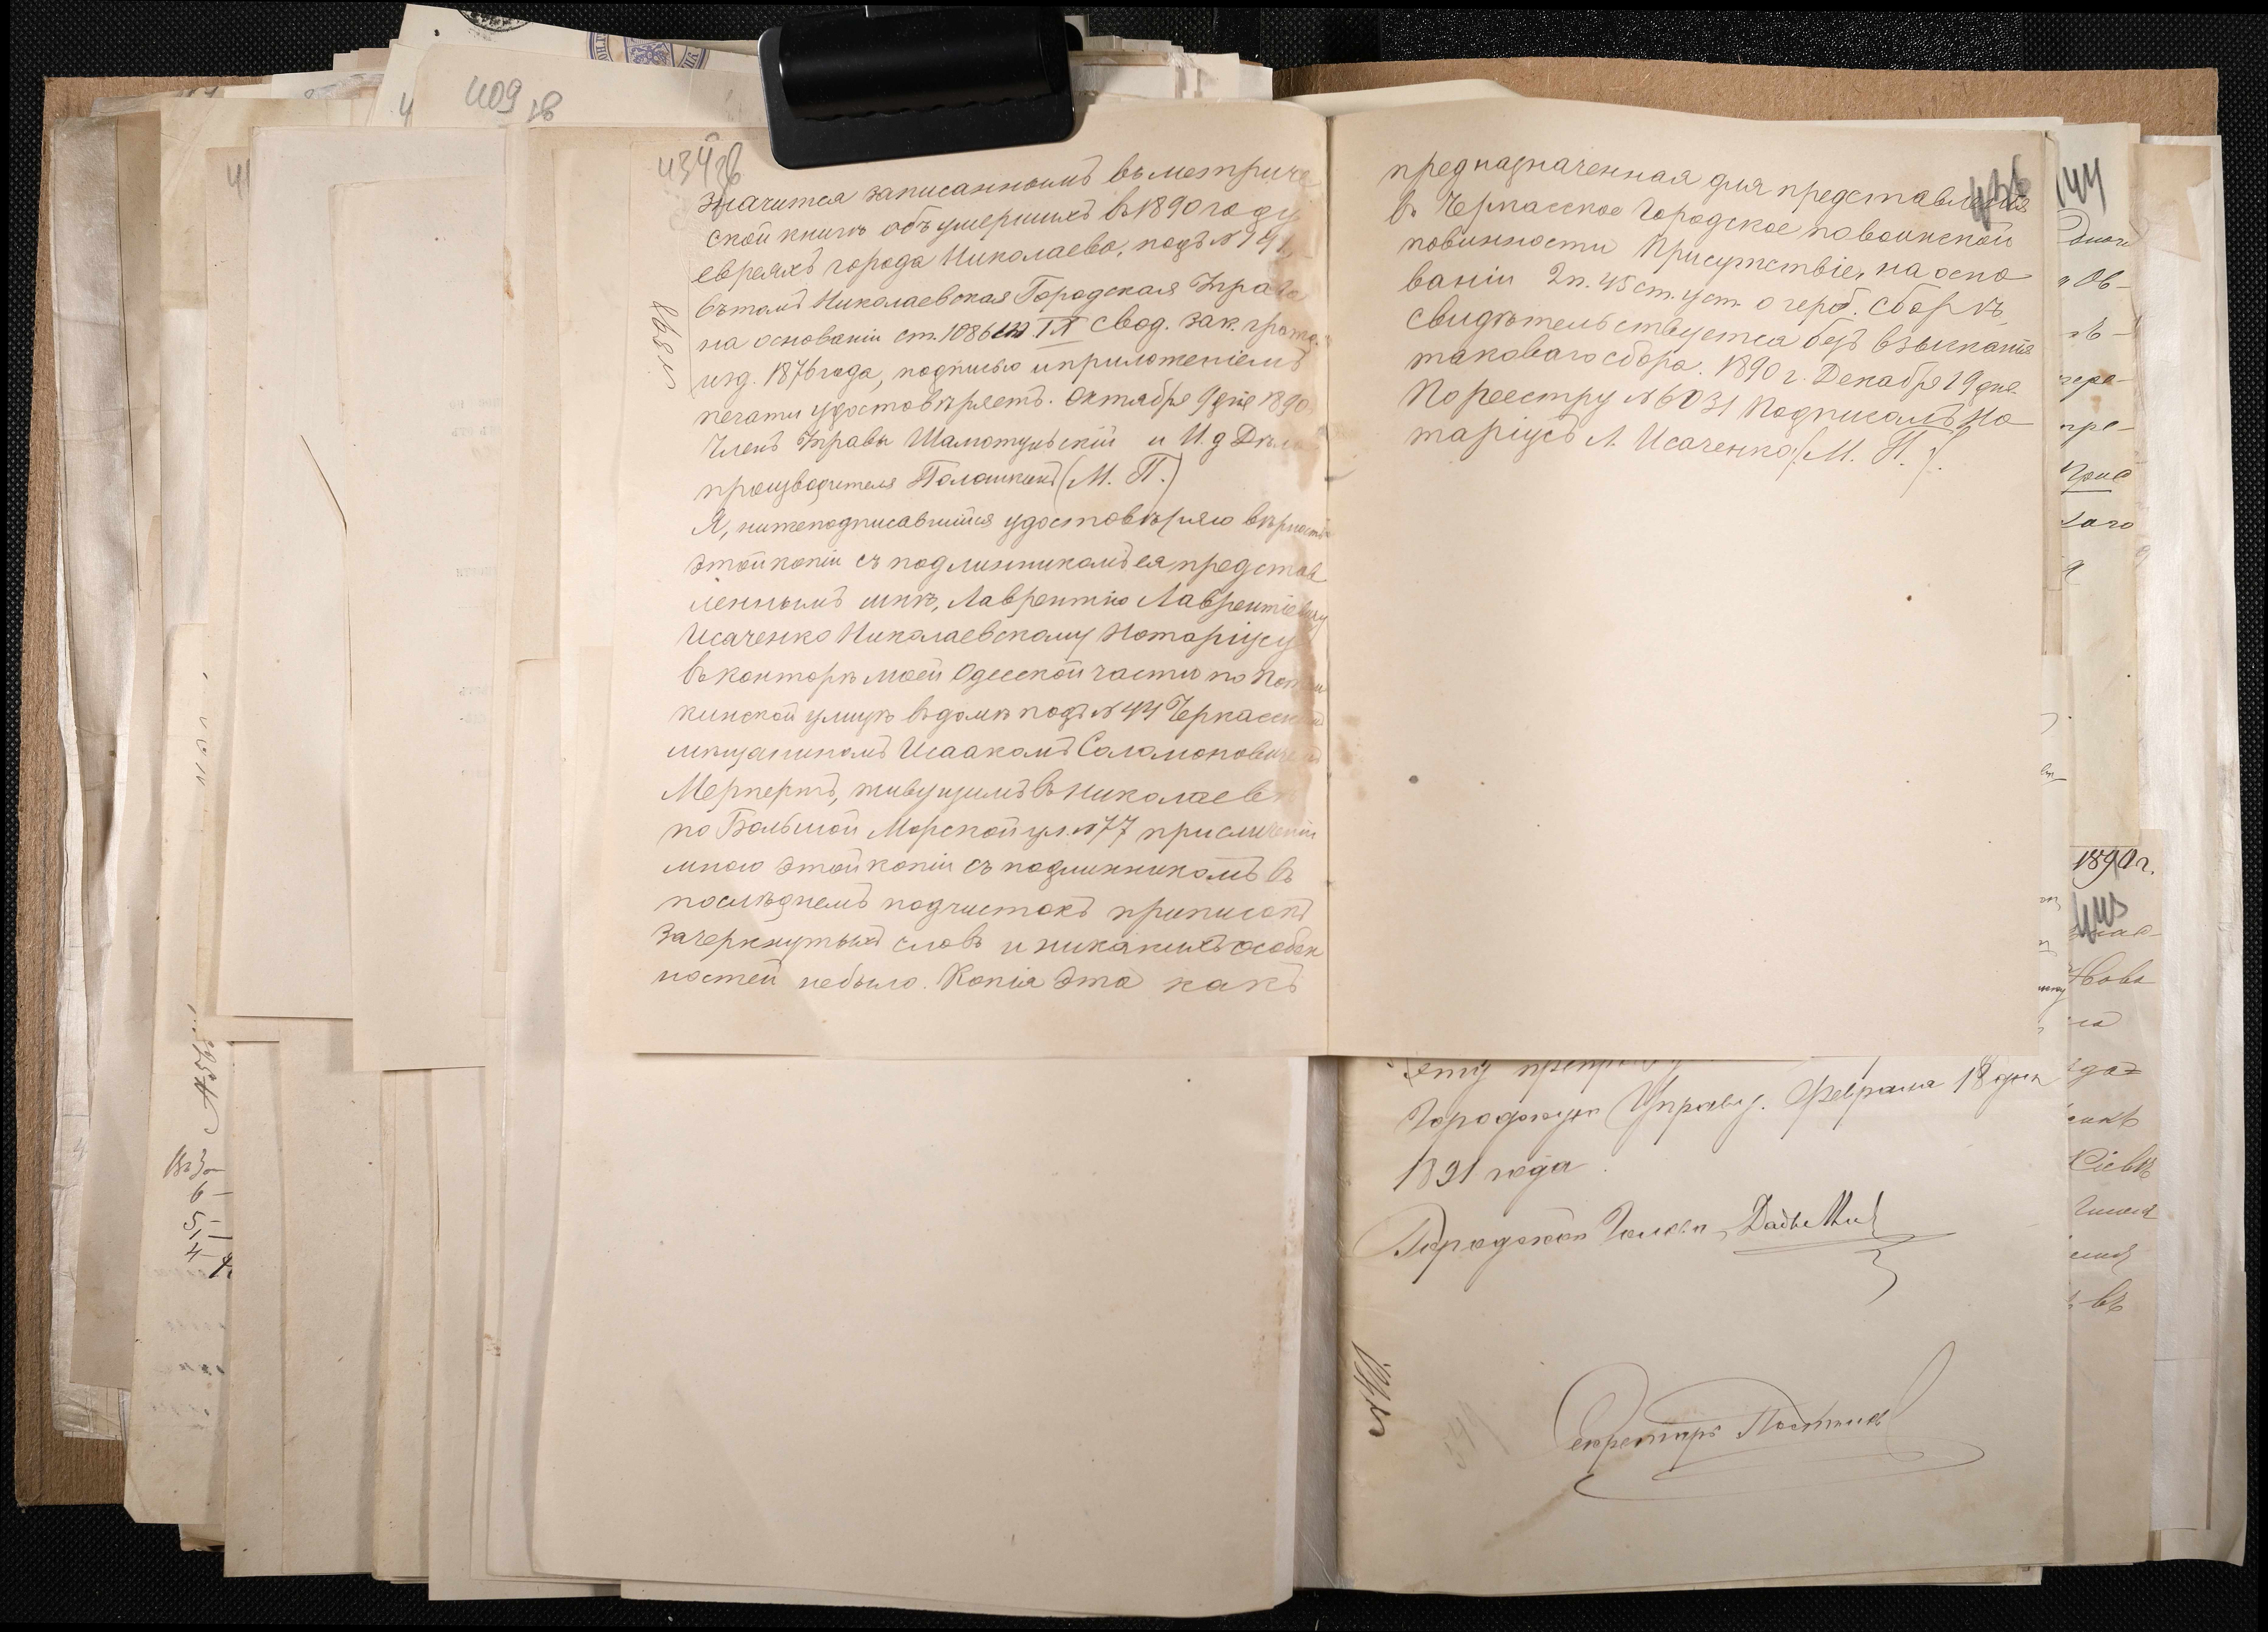 409 зв
434 зв
значится записаннымъ въ метриче
ской книгѣ объ умершихъ въ 1890 году
евреяхъ города Николаева, подъ №141,
въ томъ Николаевская Городская Управа
на основаніи ст. 1086 IX свод. зак. гражд.
изд. 1876 года, подписью и приложеніемъ
печати удостовѣряетъ. Октября 9 дня 1890
Членъ Управы и И. д Дѣло
производителя (М. П.)
Я, нижеподписавшійся удостовѣряю вѣрность
этой копіи съ подлинникомъ ея представ
леннымъ мнѣ, Лаврентію Лаврентіевичу
Исаченко Николаевскому Нотаріусу
въ конторѣ моей Одесской части по Потем
кинской улицѣ въ домѣ подъ №44 Черкасскимъ
мѣщаниномъ Исаакомъ Соломоновичемъ
Мерпертъ, живущимъ въ Николаевѣ
по Большой Морской ул. №77 при сличеніи
мною этой копіи съ подлинникомъ въ
послѣднемъ подчистокъ приписокъ
зачеркнутыхъ словъ и никакихъ особен
ностей небыло. Копія эта какъ
436
предназначенная для представленія
въ Черкасское Городское по воинской
повинности Присутствіе, на осно
ваніи 2 п. 45 ст. уст. о герб. сборѣ
свидѣтельствуется безъ взысканія
таковаго сбора. 1890 г. Декабря 19 дня
По реестру №6031 Подписалъ Но
таріусъ Л. Исаченко (М. П.).
Городскую Управу. Февраля 18 дня
1891 года.
Городской Голова
Секретарь
1890 г.